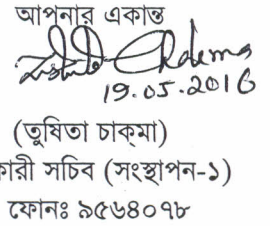 আপনার একান্ত
19.05.2016
(তুষিতা চাকমা)
কারী সচিব (সংস্থাপন-১)
ফোনঃ ৯৫৬৪০৭৮